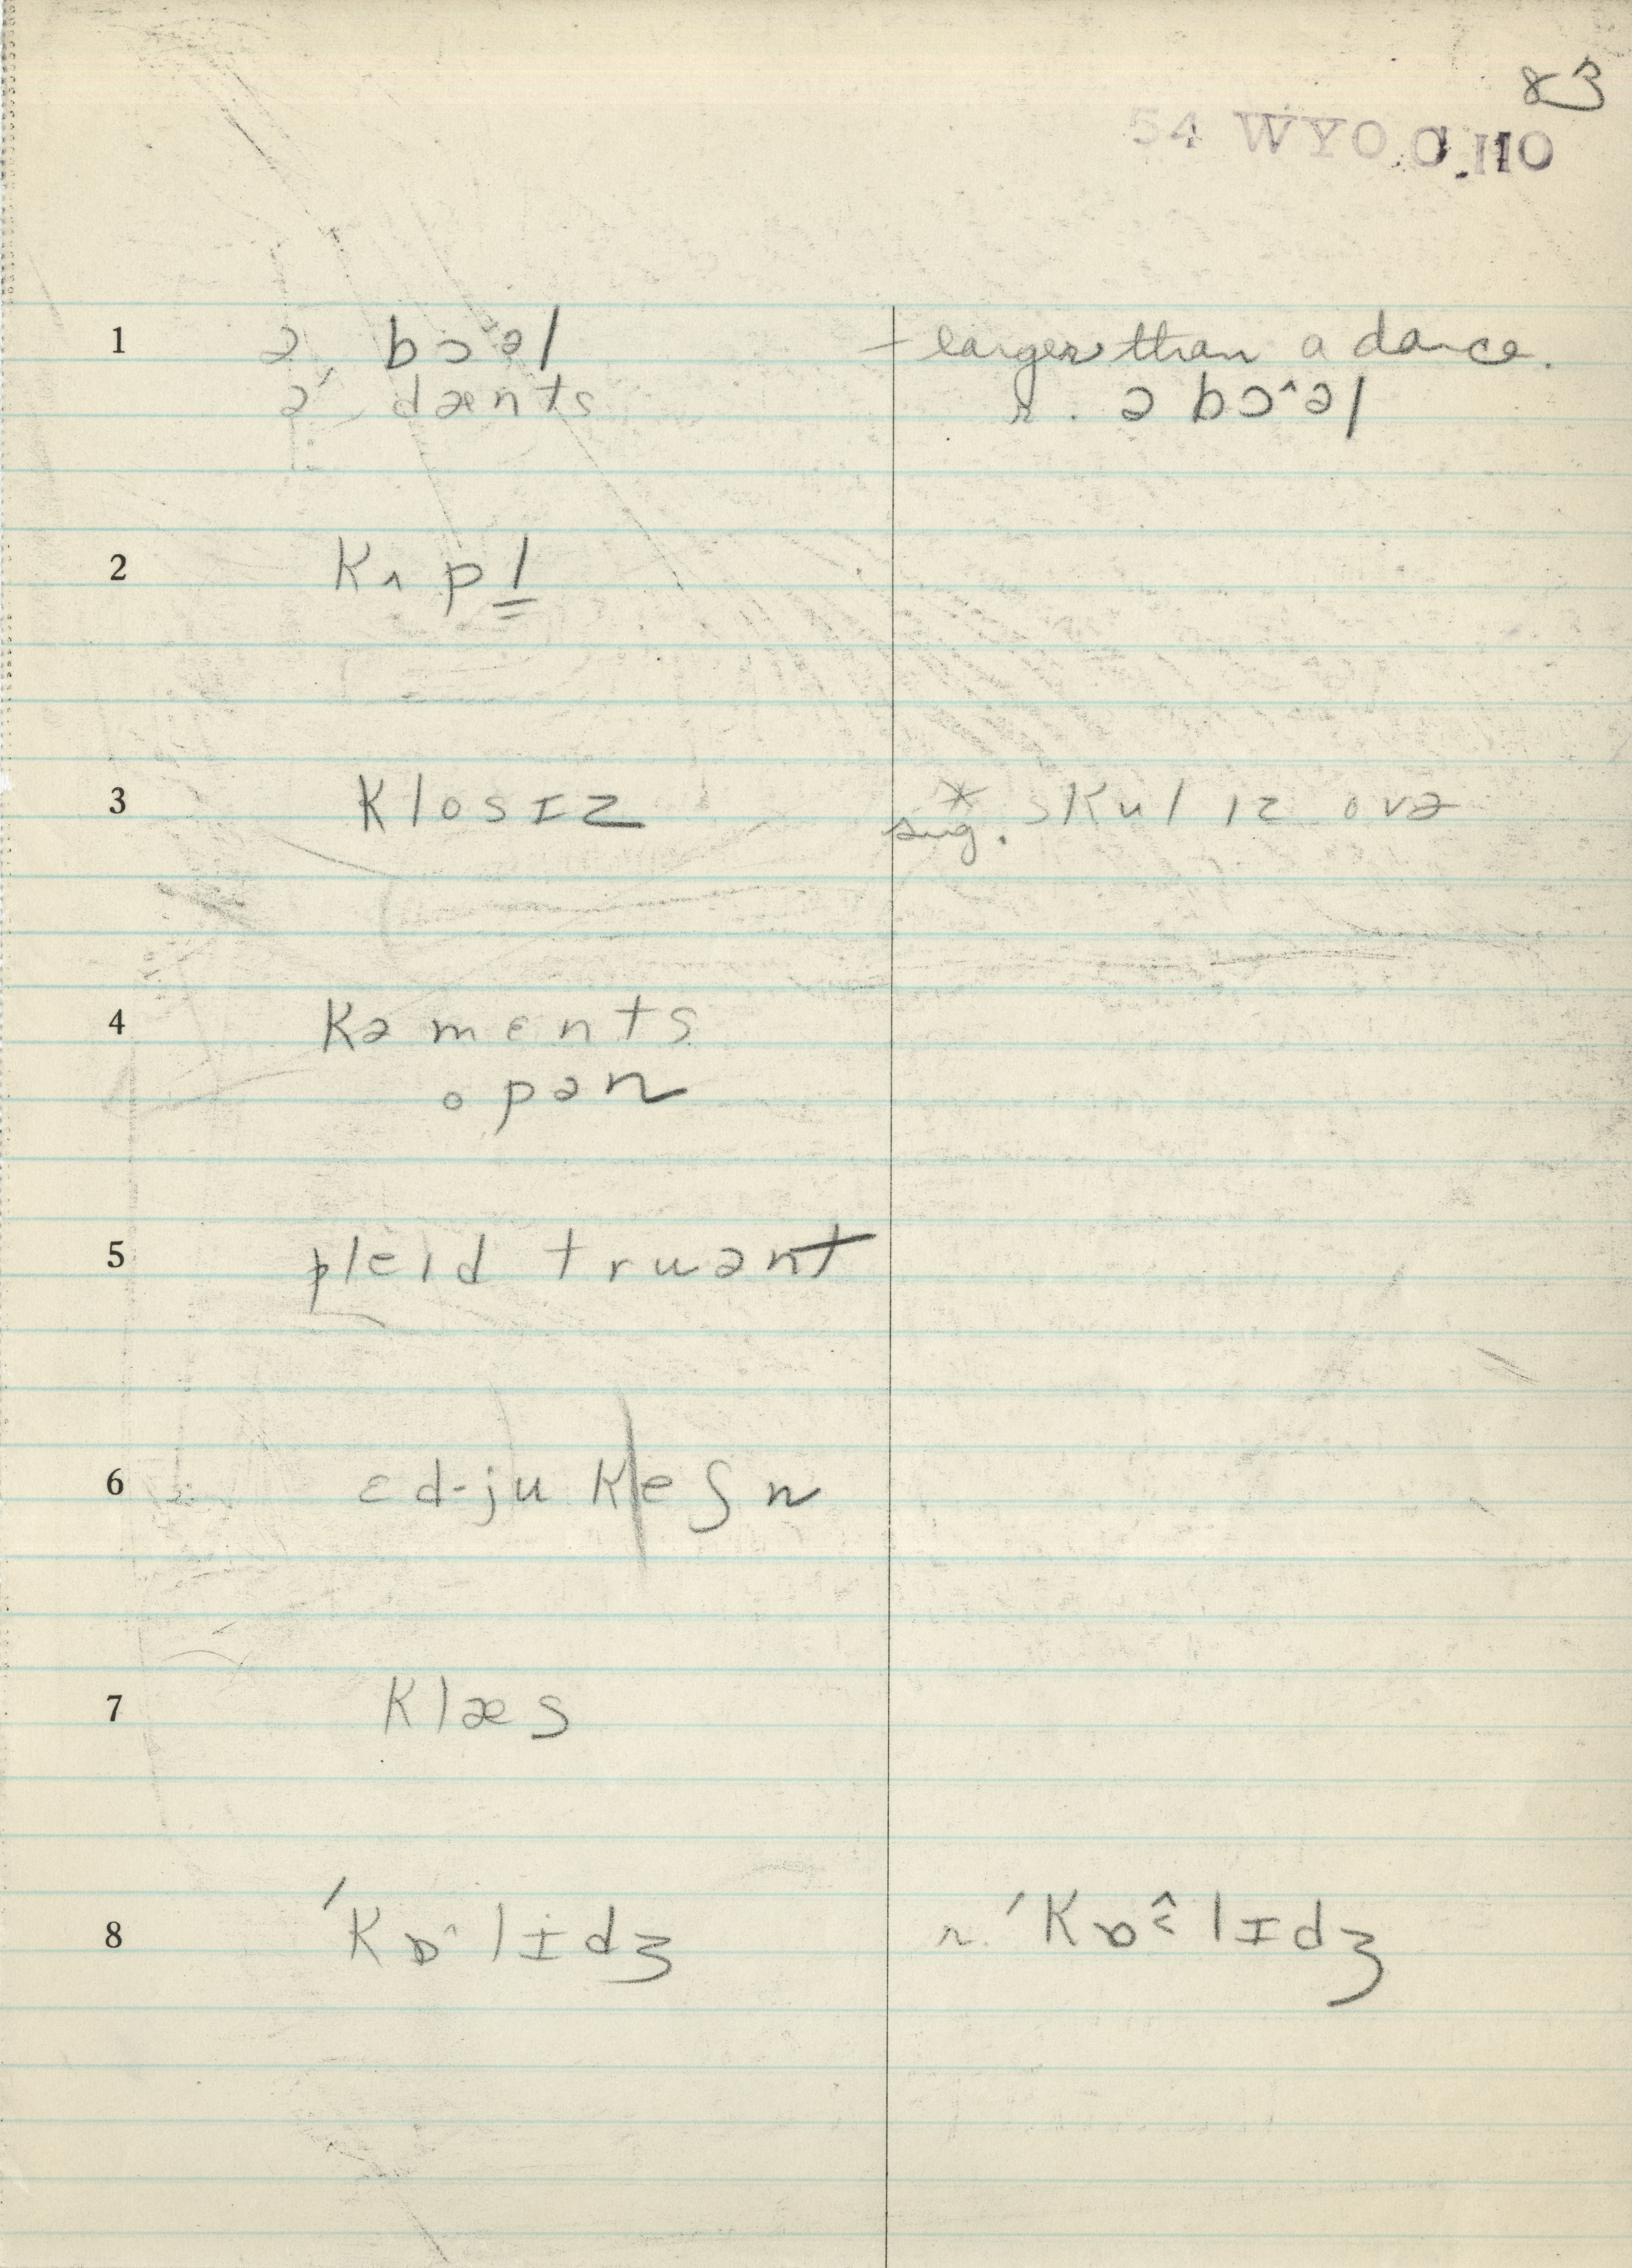 83
54 WYO C.110
1 ə bɔ˄əl – larger than a dance.
ə dænts r. ə bɔ˄əl
2 kʌpl̳
3 klosɪz * skul ɪz ovə
sug.
4 kəmɛnts
opən
5 pleɪd truənt
6 ɛd-jukeʃn
7 klæs
8 ˈkɒ˄lɪdʒ r. ˈkɒ˄˂lɪdʒ